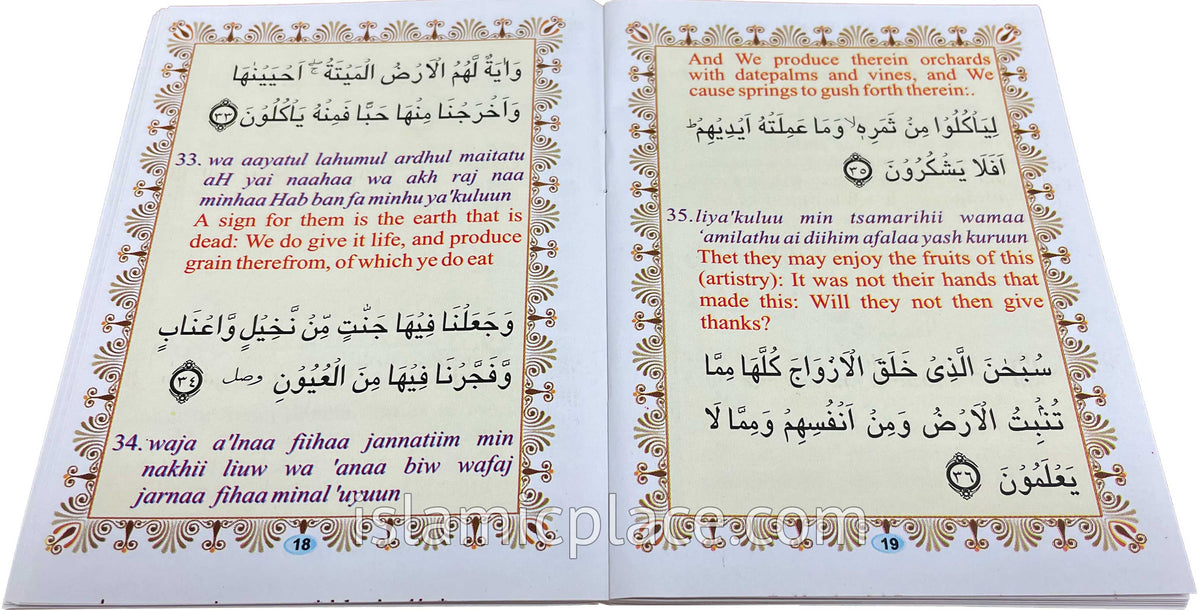 وَاٰيَةٌ لَّهُمُ الْاَرْضُ الْمَيْتَةُ ۖۚ اَحْيَيْنٰهَا
وَاَخْرَجْنَا مِنْهَا حَبًّا فَمِنْهُ يَاْكُلُوْنَ ٣٣
33. wa aayatul lahumul ardhul maitatu
aH yai naahaa wa akh raj naa
minhaa Hab ban fa minhu ya'kuluun
A sign for them is the earth that is
dead: We do give it life, and produce
grain therefrom, of which ye do eat
وَجَعَلْنَا فِيْهَا جَنّٰتٍ مِّنْ نَّخِيْلٍ وَّاَعْنَابٍ
وَّفَجَّرْنَا فِيْهَا مِنَ الْعُيُوْنِ وصلى ٣٤
34. waja a'lnaa fiihaa jannatiim min
nakhii liuw wa 'anaa biw wafaj
jarnaa fihaa minal 'uyuun
18
And We produce therein orchards
with datepalms and vines, and We
cause springs to gush forth therein:.
لِيَاْكُلُوْا مِنْ ثَمَرِهٖ ۙ وَمَا عَمِلَتْهُ اَيْدِيْهِمْ ؕ
اَفَلَا يَشْكُرُوْنَ ٣٥
35. liya'kuluu min tsamarihii wamaa
'amilathu ai diihim afalaa yash kuruun
Thet they may enjoy the fruits of this
(artistry): It was not their hands that
made this: Will they not then give
thanks?
سُبْحٰنَ الَّذِىْ خَلَقَ الْاَزْوَاجَ كُلَّهَا مِمَّا
تُنْۢبِتُ الْاَرْضُ وَمِنْ اَنْفُسِهِمْ وَمِمَّا لَا
يَعْلَمُوْنَ ٣٦
19
islamicplace.com